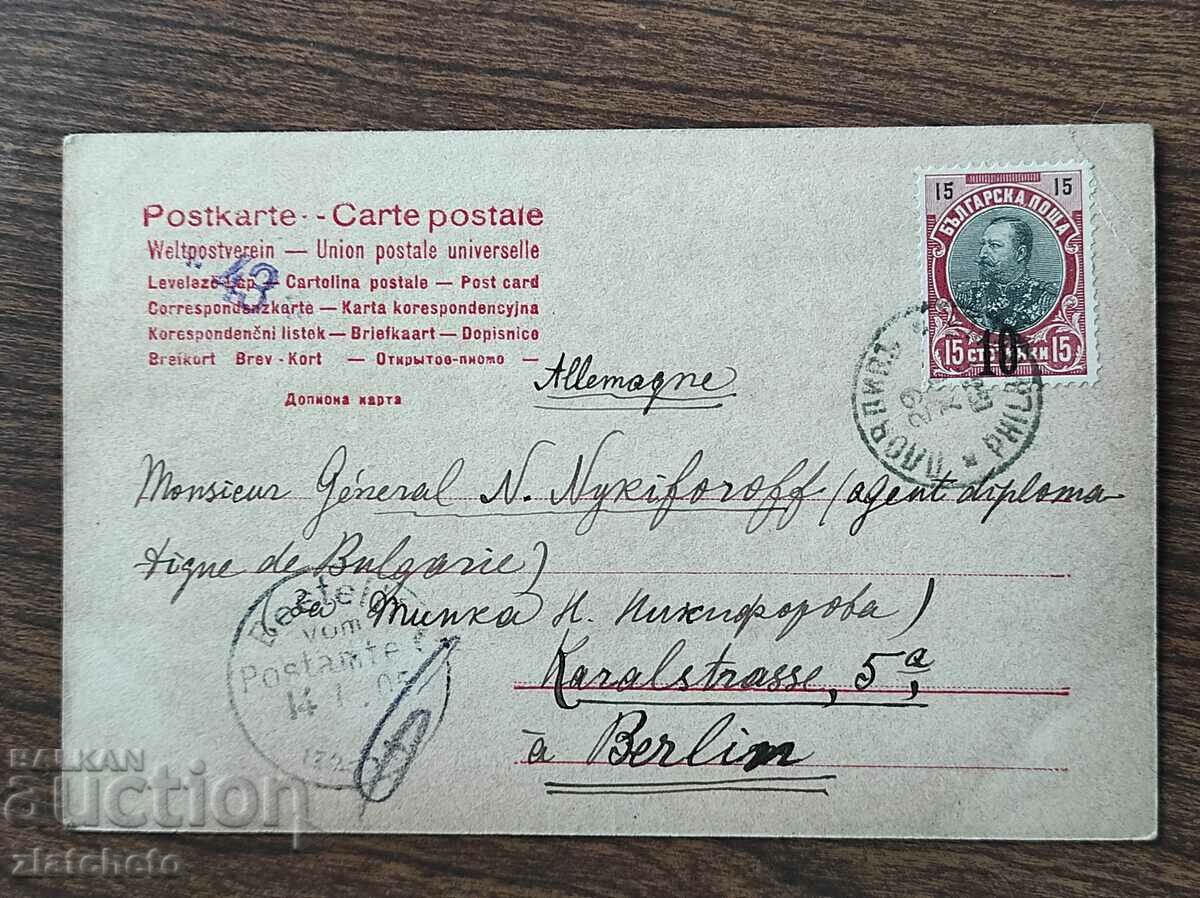 Postkarte - Carte postale
Weltpostverein — Union postale universelle
Levelező-Lap — Cartolina postale — Post card
Correspondenzkarte — Karta korespondencyjna
Korespondenční listek — Briefkaart — Dopisnice
Brefkort Brev-Kort — Открытое-писмо —
Дописна карта
43
15 15
БЪЛГАРСКА ПОЩА
15 СТОТИНКИ 15
10
ПЛОВДИВЪ
29
PHILIPP
Allemagne
Monsieur Général N. Nykiforoff (agent diploma-
tique de Bulgarie)
(за Минка Н. Никифорова)
Karalstrasse, 5a,
à Berlin
Bestellt
vom
Postamte
14
BALKAN
auction
zlatcheto